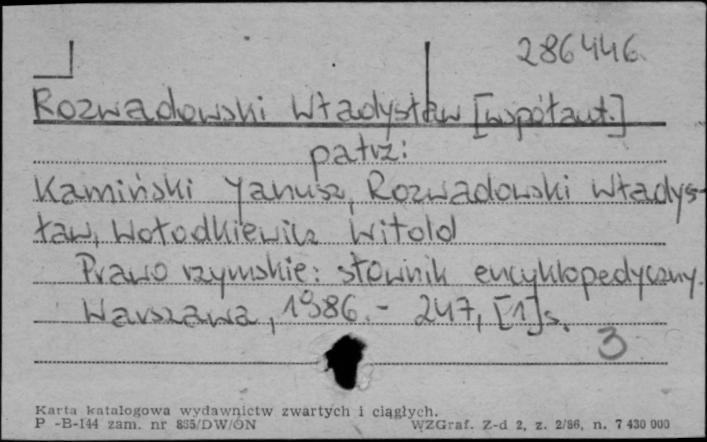 286446
Rozwadowski Władysław [współaut.]
patrz:
Kamiński Janusz, Rozwadowski Władys-
ław, Wołodkiewicz Witold
Prawo rzymskie: słownik encyklopedyczny.
Warszawa, 1986.- 247, [1]s.
3
Karta katalogowa wydawnictw zwartych i ciągłych.
P -B-144 zam. nr 835/DW/ÓN WZGraf. Z-d 2, z. 2/86, n. 7 430 000